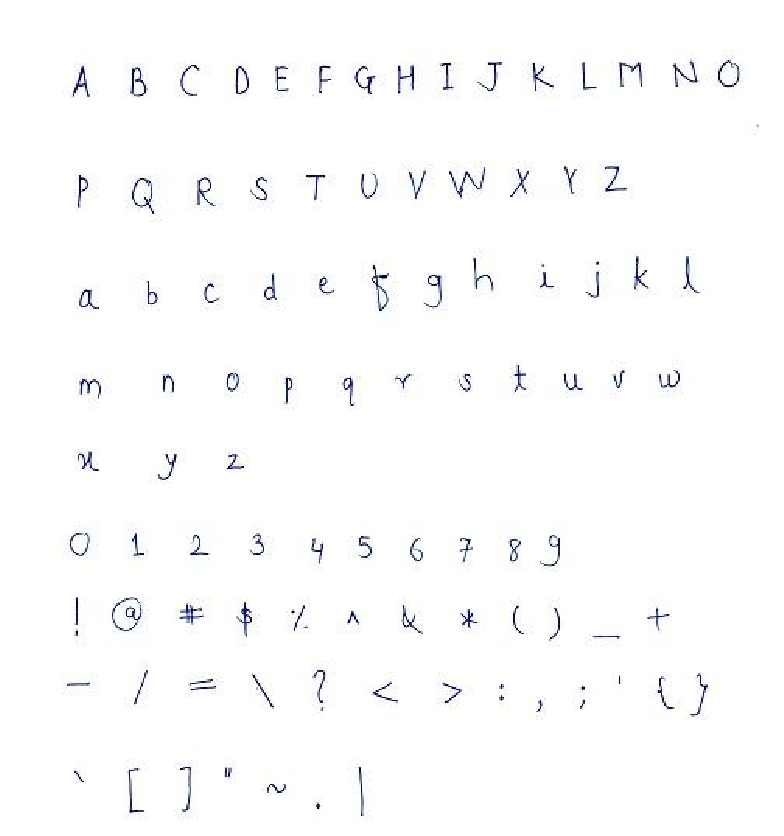 A B C D E F G H I J K L M N O
P Q R S T U V W X Y Z
a b c d e f g h i j k l
m n o p q r s t u v w
x y z
0 1 2 3 4 5 6 7 8 9
! @ # $ % ^ & * ( ) _ +
- / = \ ? < > : , ; ' { }
` [ ] " ~ . |